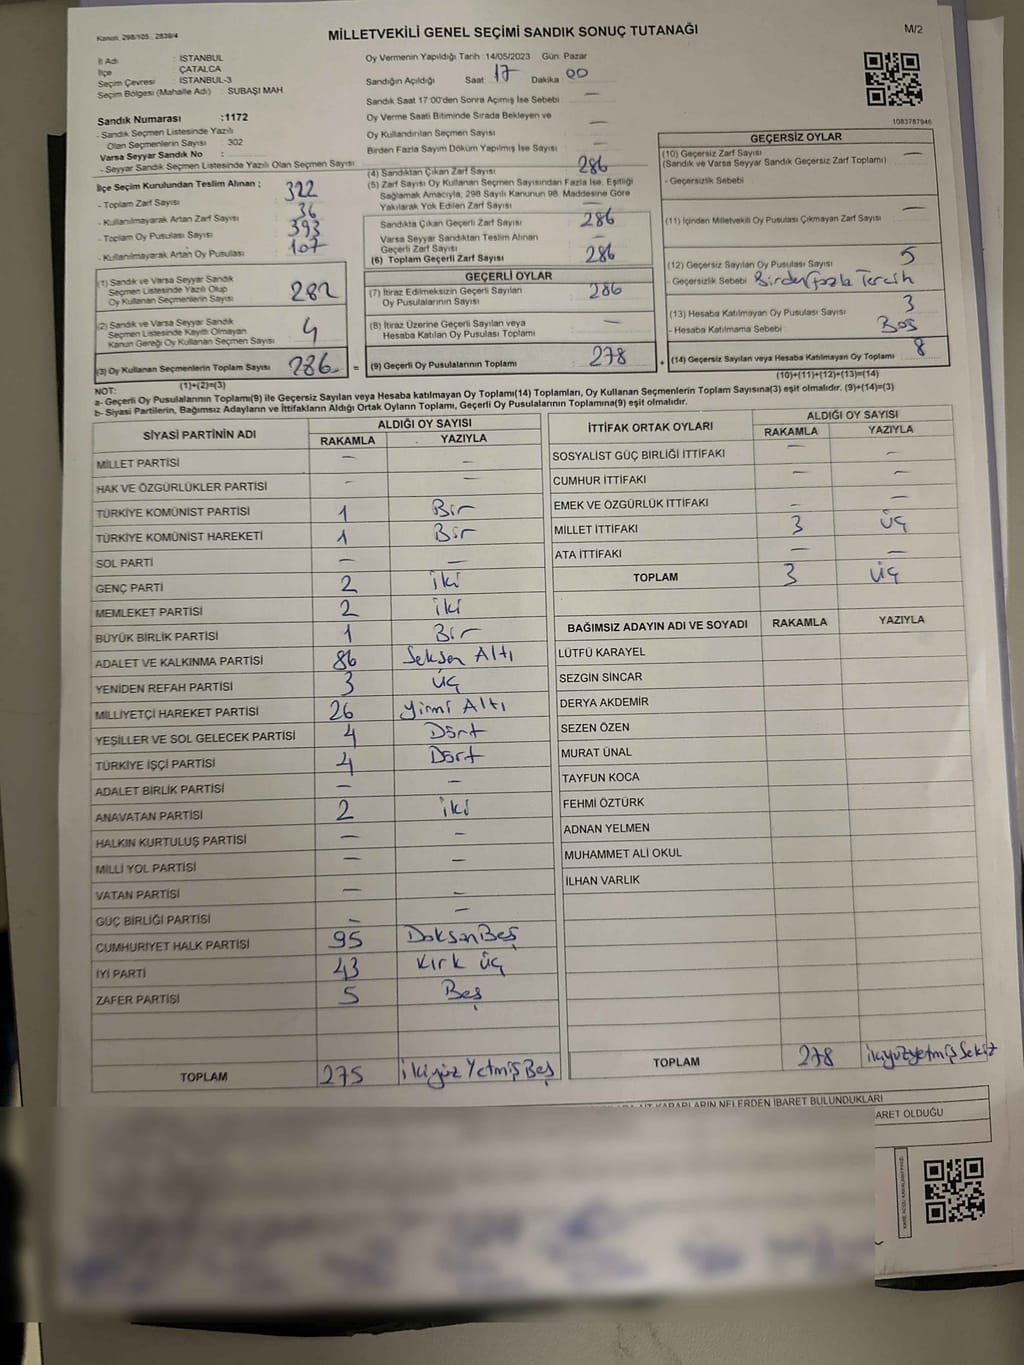 Kanun. 298/105 , 2839/4
MİLLETVEKİLİ GENEL SEÇİMİ SANDIK SONUÇ TUTANAĞI
M/2
İl Adı : İSTANBUL
İlçe : ÇATALCA
Seçim Çevresi : İSTANBUL-3
Seçim Bölgesi (Mahalle Adı) : SUBAŞI MAH
Sandık Numarası :1172
- Sandık Seçmen Listesinde Yazılı
Olan Seçmenlerin Sayısı : 302
Varsa Seyyar Sandık No :
- Seyyar Sandık Seçmen Listesinde Yazılı Olan Seçmen Sayısı :
İlçe Seçim Kurulundan Teslim Alınan ;
- Toplam Zarf Sayısı : 322
- Kullanılmayarak Artan Zarf Sayısı : 36
- Toplam Oy Pusulası Sayısı : 393
- Kullanılmayarak Artan Oy Pusulası : 107
(1) Sandık ve Varsa Seyyar Sandık
Seçmen Listesinde Yazılı Olup
Oy Kullanan Seçmenlerin Sayısı : 282
(2) Sandık ve Varsa Seyyar Sandık
Seçmen Listesinde Kayıtlı Olmayan
Kanun Gereği Oy Kullanan Seçmen Sayısı : 4
(3) Oy Kullanan Seçmenlerin Toplam Sayısı : 286
(1)+(2)=(3)
Oy Vermenin Yapıldığı Tarih :14/05/2023 Gün: Pazar
Sandığın Açıldığı Saat : 17 Dakika : 00
Sandık Saat 17:00'den Sonra Açmış İse Sebebi : —
Oy Verme Saati Bitiminde Sırada Bekleyen ve
Oy Kullandırılan Seçmen Sayısı : —
Birden Fazla Sayım Döküm Yapılmış İse Sayısı : —
(4) Sandıktan Çıkan Zarf Sayısı : 286
(5) Zarf Sayısı Oy Kullanan Seçmen Sayısından Fazla İse, Eşitliği
Sağlamak Amacıyla, 298 Sayılı Kanunun 98. Maddesine Göre
Yakılarak Yok Edilen Zarf Sayısı : —
Sandıkta Çıkan Geçerli Zarf Sayısı : 286
Varsa Seyyar Sandıktan Teslim Alınan
Geçerli Zarf Sayısı : —
(6) Toplam Geçerli Zarf Sayısı : 286
GEÇERLİ OYLAR
(7) İtiraz Edilmeksizin Geçerli Sayılan
Oy Pusulalarının Sayısı : 286
(8) İtiraz Üzerine Geçerli Sayılan veya
Hesaba Katılan Oy Pusulası Toplamı : —
= (9) Geçerli Oy Pusulalarının Toplamı : 278 +
1083787946
GEÇERSİZ OYLAR
(10) Geçersiz Zarf Sayısı : —
(Sandık ve Varsa Seyyar Sandık Geçersiz Zarf Toplamı)
- Geçersizlik Sebebi :
(11) İçinden Milletvekili Oy Pusulası Çıkmayan Zarf Sayısı : —
(12) Geçersiz Sayılan Oy Pusulası Sayısı : 5
- Geçersizlik Sebebi : Birden fazla Tercih
(13) Hesaba Katılmayan Oy Pusulası Sayısı : 3
- Hesaba Katılmama Sebebi : Boş
(14) Geçersiz Sayılan veya Hesaba Katılmayan Oy Toplamı : 8
(10)+(11)+(12)+(13)=(14)
NOT:
a- Geçerli Oy Pusulalarının Toplamı(9) ile Geçersiz Sayılan veya Hesaba katılmayan Oy Toplamı(14) Toplamları, Oy Kullanan Seçmenlerin Toplam Sayısına(3) eşit olmalıdır. (9)+(14)=(3)
b- Siyasi Partilerin, Bağımsız Adayların ve İttifakların Aldığı Ortak Oyların Toplamı, Geçerli Oy Pusulalarının Toplamına(9) eşit olmalıdır.
SİYASİ PARTİNİN ADI ALDIĞI OY SAYISI
RAKAMLA YAZIYLA
MİLLET PARTİSİ — —
HAK VE ÖZGÜRLÜKLER PARTİSİ - —
TÜRKİYE KOMÜNİST PARTİSİ 1 Bir
TÜRKİYE KOMÜNİST HAREKETİ 1 Bir
SOL PARTİ — —
GENÇ PARTİ 2 iki
MEMLEKET PARTİSİ 2 iki
BÜYÜK BİRLİK PARTİSİ 1 Bir
ADALET VE KALKINMA PARTİSİ 86 Seksen Altı
YENİDEN REFAH PARTİSİ 3 üç
MİLLİYETÇİ HAREKET PARTİSİ 26 yirmi Altı
YEŞİLLER VE SOL GELECEK PARTİSİ 4 Dört
TÜRKİYE İŞÇİ PARTİSİ 4 Dört
ADALET BİRLİK PARTİSİ — —
ANAVATAN PARTİSİ 2 iki
HALKIN KURTULUŞ PARTİSİ — —
MİLLİ YOL PARTİSİ — —
VATAN PARTİSİ — —
GÜÇ BİRLİĞİ PARTİSİ — —
CUMHURİYET HALK PARTİSİ 95 Doksan Beş
İYİ PARTİ 43 Kırk üç
ZAFER PARTİSİ 5 Beş
TOPLAM 275 ikiyüz Yetmiş Beş
İTTİFAK ORTAK OYLARI ALDIĞI OY SAYISI
RAKAMLA YAZIYLA
SOSYALİST GÜÇ BİRLİĞİ İTTİFAKI — —
CUMHUR İTTİFAKI — —
EMEK VE ÖZGÜRLÜK İTTİFAKI — —
MİLLET İTTİFAKI 3 üç
ATA İTTİFAKI — —
TOPLAM 3 üç
BAĞIMSIZ ADAYIN ADI VE SOYADI RAKAMLA YAZIYLA
LÜTFÜ KARAYEL
SEZGİN SİNCAR
DERYA AKDEMİR
SEZEN ÖZEN
MURAT ÜNAL
TAYFUN KOCA
FEHMİ ÖZTÜRK
ADNAN YELMEN
MUHAMMET ALİ OKUL
İLHAN VARLIK
TOPLAM 278 ikiyüzyetmiş Sekiz
KARARLARIN NELERDEN İBARET BULUNDUKLARI
OLDUĞU